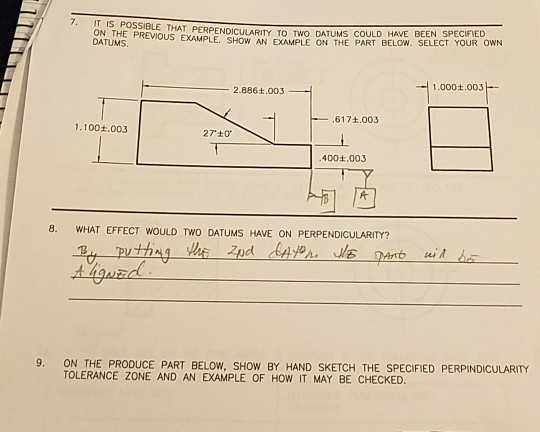 7. IT IS POSSIBLE THAT PERPENDICULARITY TO TWO DATUMS COULD HAVE BEEN SPECIFIED
ON THE PREVIOUS EXAMPLE. SHOW AN EXAMPLE ON THE PART BELOW. SELECT YOUR OWN
DATUMS.
2.886±.003
1.000±.003
1.100±.003
27°±0°
.617±.003
.400±.003
B
A
8. WHAT EFFECT WOULD TWO DATUMS HAVE ON PERPENDICULARITY?
By putting the 2nd datum the part will be
Aligned.
9. ON THE PRODUCE PART BELOW, SHOW BY HAND SKETCH THE SPECIFIED PERPINDICULARITY
TOLERANCE ZONE AND AN EXAMPLE OF HOW IT MAY BE CHECKED.